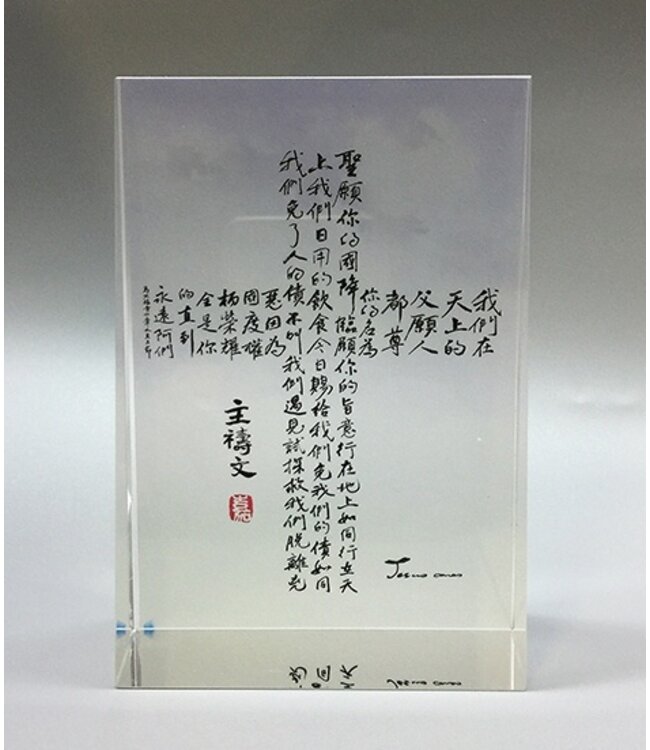 我們在
天上的
父願人
都尊
你的名為
聖願你的國降臨願你的旨意行在地上如同行在天
上我們日用的飲食今日賜給我們免我們的債如同
我們免了人的債不叫我們遇見試探救我們脫離兇
惡因為
國度權
柄榮耀
全是你
的直到
永遠阿們
主禱文
Jesus cares